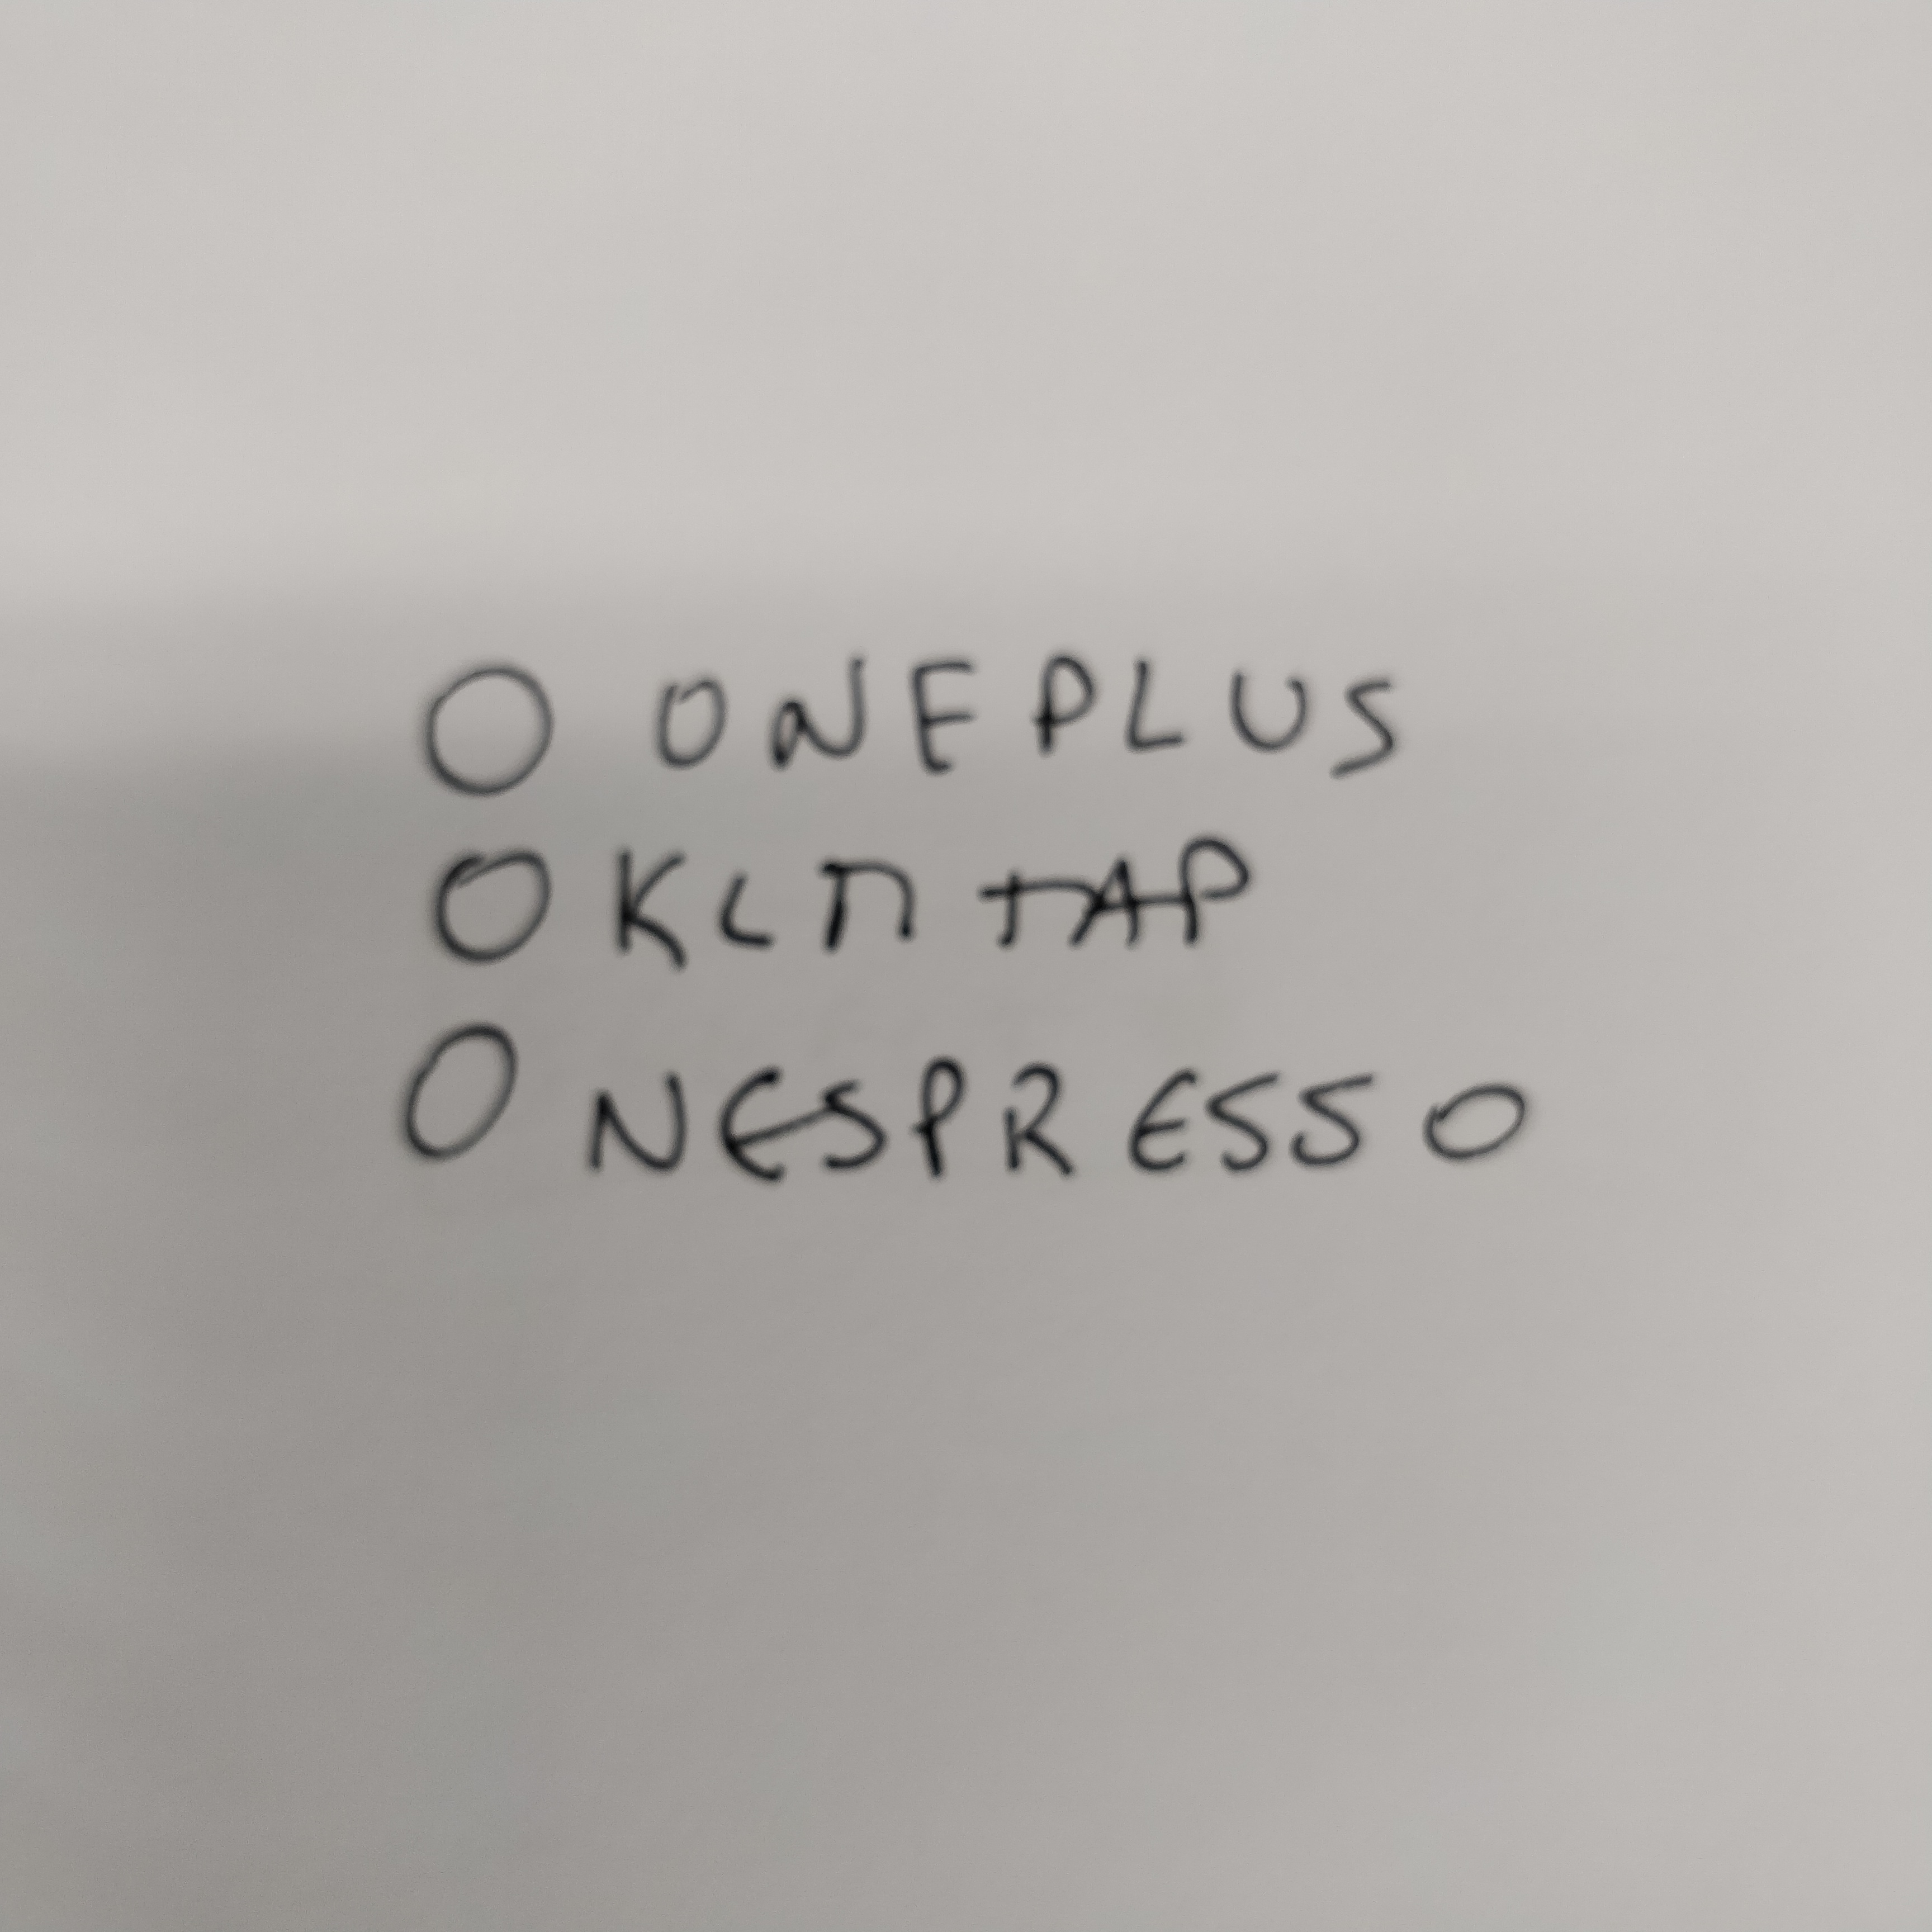 O ONEPLUS
O KLM TAP
O NESPRESSO